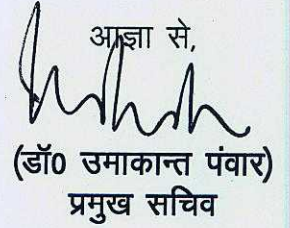 आज्ञा से,
(डॉ0 उमाकान्त पंवार)
प्रमुख सचिव